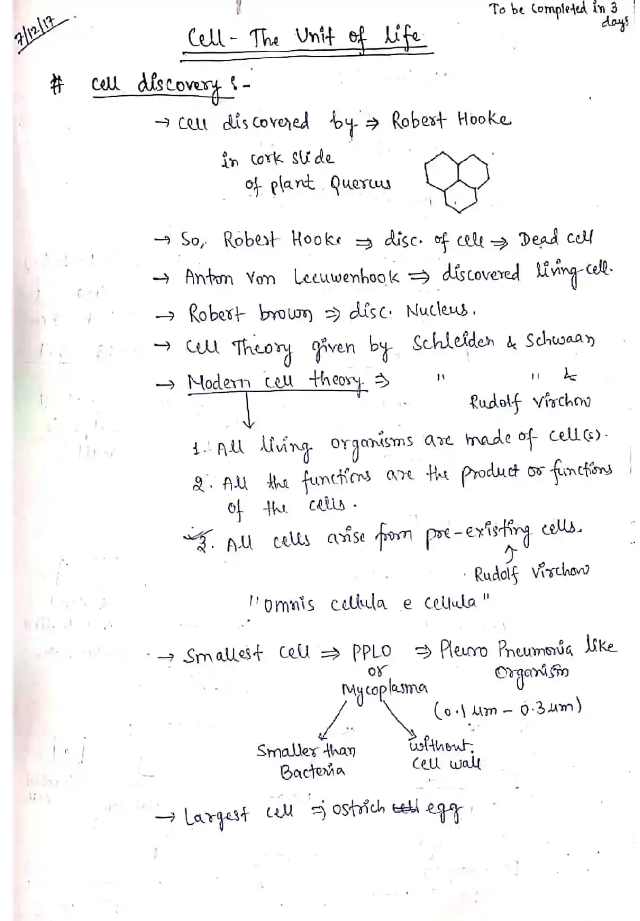 7/12/17
To be completed in 3 days
Cell - The Unit of Life
# Cell discovery :-
→ Cell discovered by ⇒ Robert Hooke
in cork slide
of plant Quercus
→ So, Robert Hooke ⇒ disc. of cell ⇒ Dead cell
→ Anton Von Leeuwenhook ⇒ discovered living cell.
→ Robert brown ⇒ disc. Nucleus.
→ Cell Theory given by Schleiden & Schwaan
→ Modern cell theory ⇒ " " &
Rudolf Virchow
1. All living organisms are made of cell(s).
2. All the functions are the product or functions
of the cells.
3. All cells arise from pre-existing cells.
Rudolf Virchow
"Omnis cellula e cellula"
→ Smallest cell ⇒ PPLO ⇒ Pleuro Pneumonia like
or Organism
Mycoplasma
(0.1 µm - 0.3 µm)
Smaller than without
Bacteria cell wall
→ Largest cell ⇒ ostrich cell egg